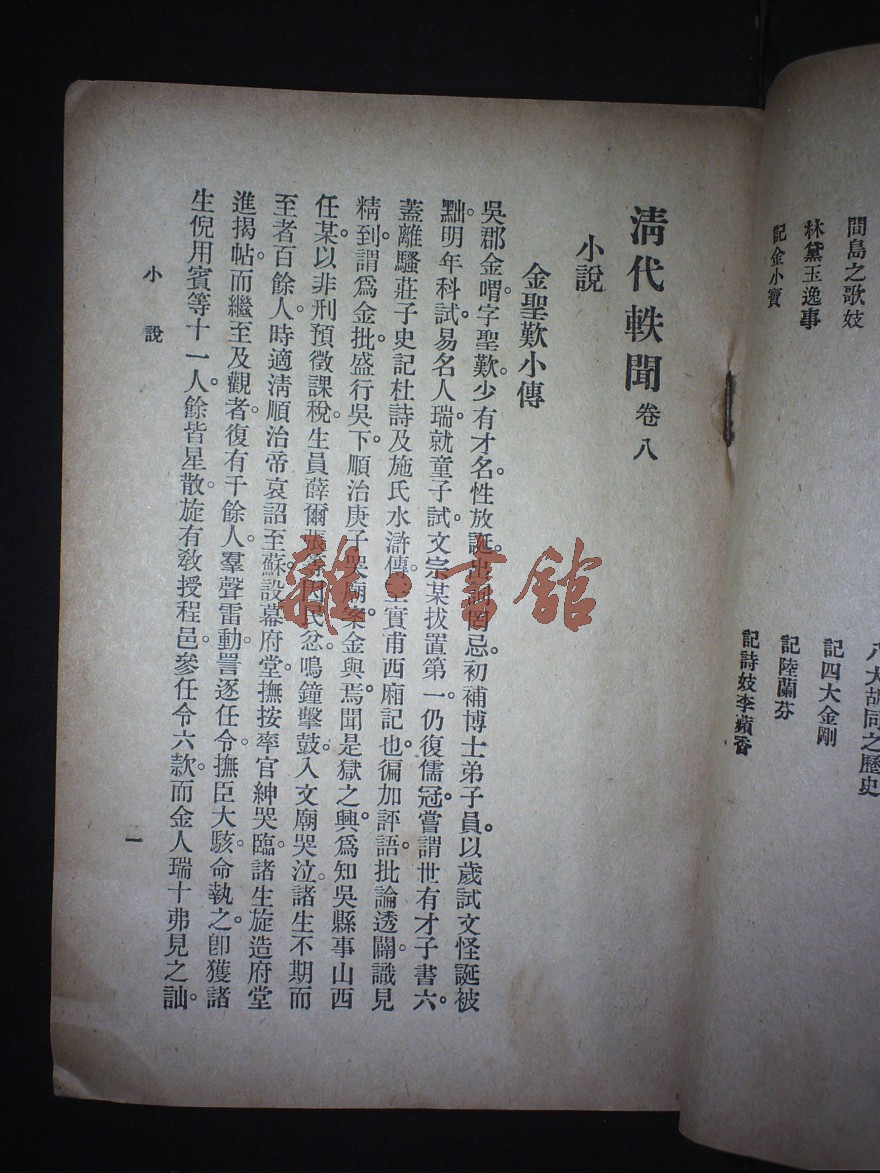 間島之歌妓
林黛玉逸事
記金小寶
八大胡同之歷史
記四大金剛
記陸蘭芬
記詩妓李蘋香
清代軼聞 卷八
小說
金聖歎小傳
吳郡金喟。字聖歎。少有才名。性放誕。忌。初補博士弟子員。以歲試文怪誕被
黜。明年科試。易名人瑞。就童子試。文宗某拔置第一。仍復儒冠。嘗謂世有才子書六。
蓋離騷莊子史記杜詩及施氏水滸傳。王實甫西廂記也。徧加評語。批論透闢。識見
精到。謂爲金批。盛行吳下。順治庚子哭廟案。金與焉。聞是獄之興。爲知吳縣事山西
任某。以非刑預徵課稅。生員薛爾張等因民忿。鳴鐘擊鼓。入文廟哭泣。諸生不期而
至者百餘人。時適淸順治帝哀詔至蘇。設幕府堂。撫按率官紳哭臨。諸生旋造府堂
進揭帖。而繼至及觀者。復有千餘人。羣聲雷動。詈逐任令。撫臣大駭。命執之。卽獲諸
生倪用賓等十一人。餘皆星散。旋有敎授程邑。參任令六款。而金人瑞十弗見之訕。
小說
一
雜·書館